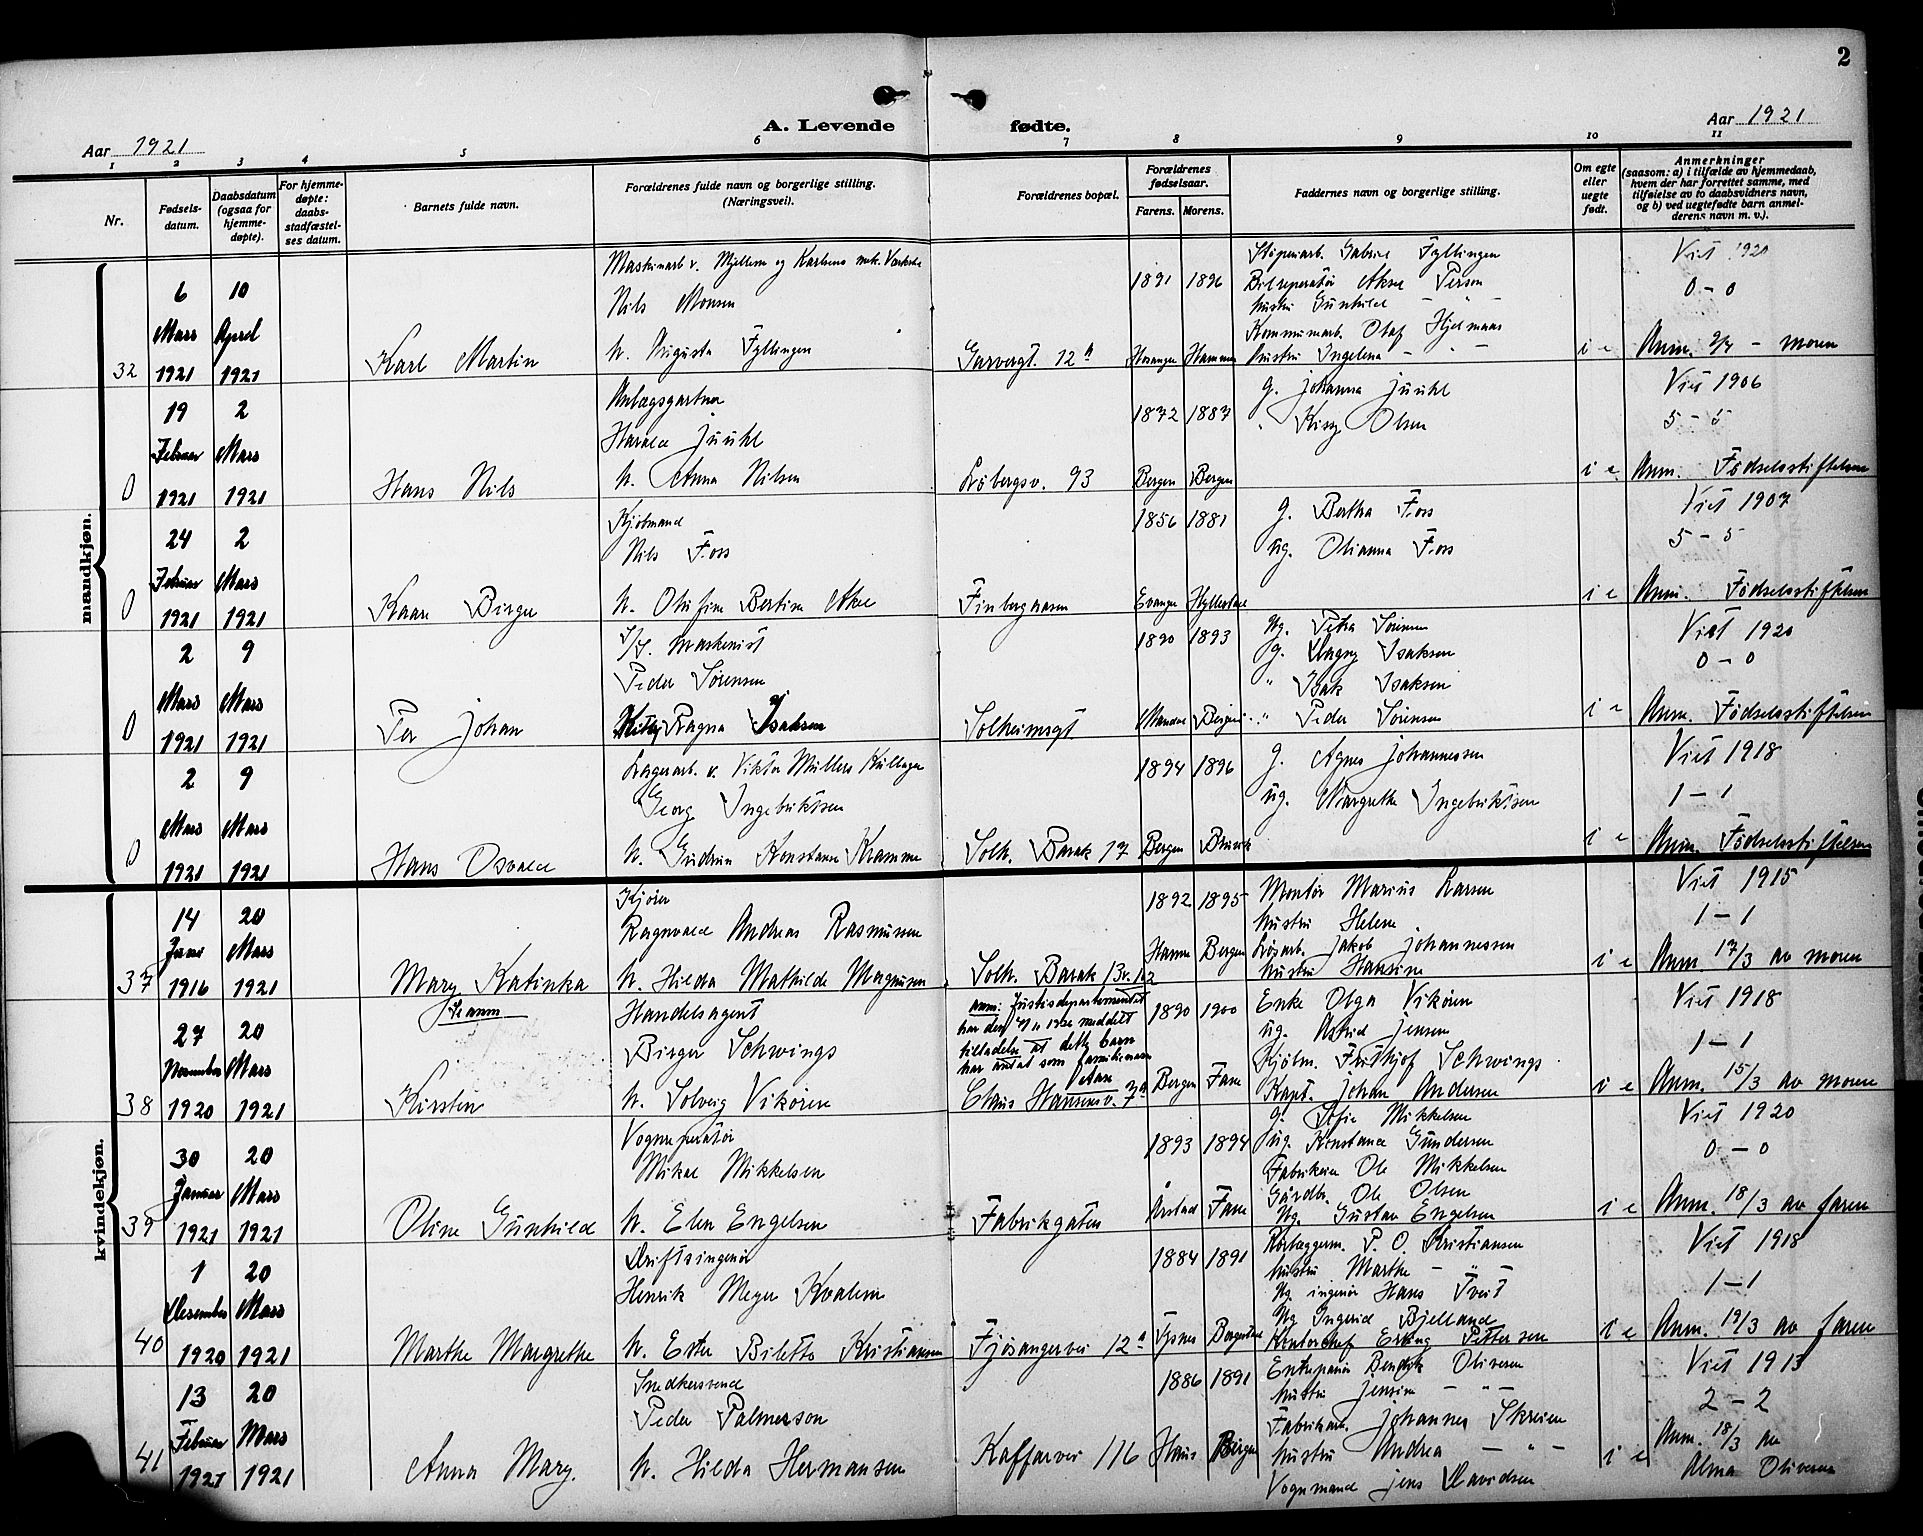 2
Aar 1921
A. Levende fødte.
Aar 1921
1 2 3 4 5 6 7 8 9 10 11
Nr.
Fødsels-
datum.
Daabsdatum
(ogsaa for
hjemme-
døpte).
For hjemme-
døpte:
daabs-
stadfæstel-
ses datum.
Barnets fulde navn.
Forældrenes fulde navn og borgerlige stilling.
(Næringsvei).
Forældrenes bopæl.
Forældrenes
fødselsaar.
Farens. Morens.
Faddernes navn og borgerlige stilling.
Om egte
eller
uegte
født.
Anmerkninger
(saasom: a) i tilfælde av hjemmedaab,
hvem der har forrettet samme, med
tilføielse av to daabsvidners navn,
og b) ved uegtefødte barn anmel-
derens navn m. v.).
mandkjøn.
32
6 Mars 1921
10 April 1921
Karl Martin
Maskinarb v. Mjellem og Karlsens mek. Værksted
Nils Monsen
h. Augusta Fyllingen
Garvergt. 12 a
1891 1896
Hosanger Hammer
Støperiarb. Gabriel Fyllingen
Bilreperatør Aksel Person
hustru Gunhild - " -
Kommunearb. Olaf Hjelmaas
hustru Ingelena - " -
i e
Viet 1920
0 - 0
Anm. 2/4 - moren
0
19 Februar 1921
2 Mars 1921
Hans Nils
Anlægsgartner
Harald Juuhl
h. Anna Nilsen
Løbergsv. 93
1872 1887
Bergen Bergen
g. Johanna Juuhl
" Kissy Olsen
i e
Viet 1906
5 - 5
Anm. Fødselsstiftelsen
0
24 Februar 1921
2 Mars 1921
Kaare Birger
Kjøbmand
Nils Foss
h. Olufine Bertine Ake
Finbergaasen
1856 1881
Evanger Hyllestad
g. Bertha Foss
ug. Olianna Foss
i e
Viet 1907
5 - 5
Anm. Fødselsstiftelsen
0
2 Mars 1921
9 Mars 1921
Per Johan
S/S. maskinist
Peder Sørensen
Kitty Ragna Isaksen
Solheimsgt
1890 1893
Mandal Bergen
Ug. Petra Sørensen
g. Dagny Isaksen
" Isak Isaksen
" Peder Sørensen
i e
Viet 1920
0 - 0
Anm. Fødselsstiftelsen
0
2 Mars 1921
9 Mars 1921
Hans Osvald
Lagerarb. v. Viktor Müllers Kullager
Georg Ingebriktsen
h. Gudrun Konstanse Kramme
Solh. Barak 17
1894 1896
Bergen
g. Agnes Johannessen
ug. Margrethe Ingebriktsen
i e
Viet 1918
1 - 1
Anm. Fødselsstiftelsen
kvindekjøn.
37
14 Juni 1916
20 Mars 1921
Mary Katinka
Kjører
Ragnvald Andreas Rasmussen
h. Hilda Mathilde Magnusen
Solh. Barak 13 v. 102
1892 1895
Hamre Bergen
Montør Marius Larsen
hustru Helene
Løsarb. Jakob Johannessen
hustru Hansine
i e
Viet 1915
1 - 1
Anm. 17/3 av moren
38
27 November 1920
20 Mars 1921
Kirsten
Handelsagent
Birger Schwings
h. Solveig Vikøren
anm: Justisdepartementet
har den 4/11 1926 meddelt
tilladelse at dette barn
har antat som familienavn
Claus Hansensv. 7 a
1890 1900
Bergen Fane
Enke Olga Vikøren
ug. Astrid Jensen
Kjøbm. Fritthjof Schwings
Kapt. Johan Andersen
i e
Viet 1918
1 - 1
Anm. 15/3 av moren
39
30 Januar 1921
20 Mars 1921
Oline Gunhild
Vognreperatør
Mikal Mikkelsen
h. Elen Engelsen
Fabrikgaten
1893 1894
Årstad Fane
g. Sofie Mikkelsen
ug. Konstance Gundersen
Fabrikeier Ole Mikkelsen
Gårdbr. Ole Olsen
Ug. Gustav Engelsen
i e
Viet 1920
0 - 0
Anm. 18/3 av faren
40
1 Desember 1920
20 Mars 1921
Marthe Margrethe
Driftsingeniør
Henrik Meyer Kvalem
h. Ester Biletto Kristiansen
Fjøsangervei 12 a
1884 1891
Tysnes
Rørlæggerm. P. O. Kristiansen
hustru Marthe - " -
Ug. ingeniør Hans Tveit
Ug Ingerid Bjelland
Kontorchef Erling Pettersen
i e
Viet 1918
1 - 1
Anm. 19/3 av faren
41
13 Februar 1921
20 Mars 1921
Anna Mary.
Snedkersvend
Peder Palmerson
h. Hilda Hermansen
Kaffarvei 116
1886 1891
Haus Bergen
Entreprenør Bendik Oliversen
hustru Jensine - " -
Fabrikarb. Johannes Skreien
hustru Andrea - " -
Vognmand Jens Davidsen
i e
Viet 1913
2 - 2
Anm. 18/3 av
Alma Oliversen